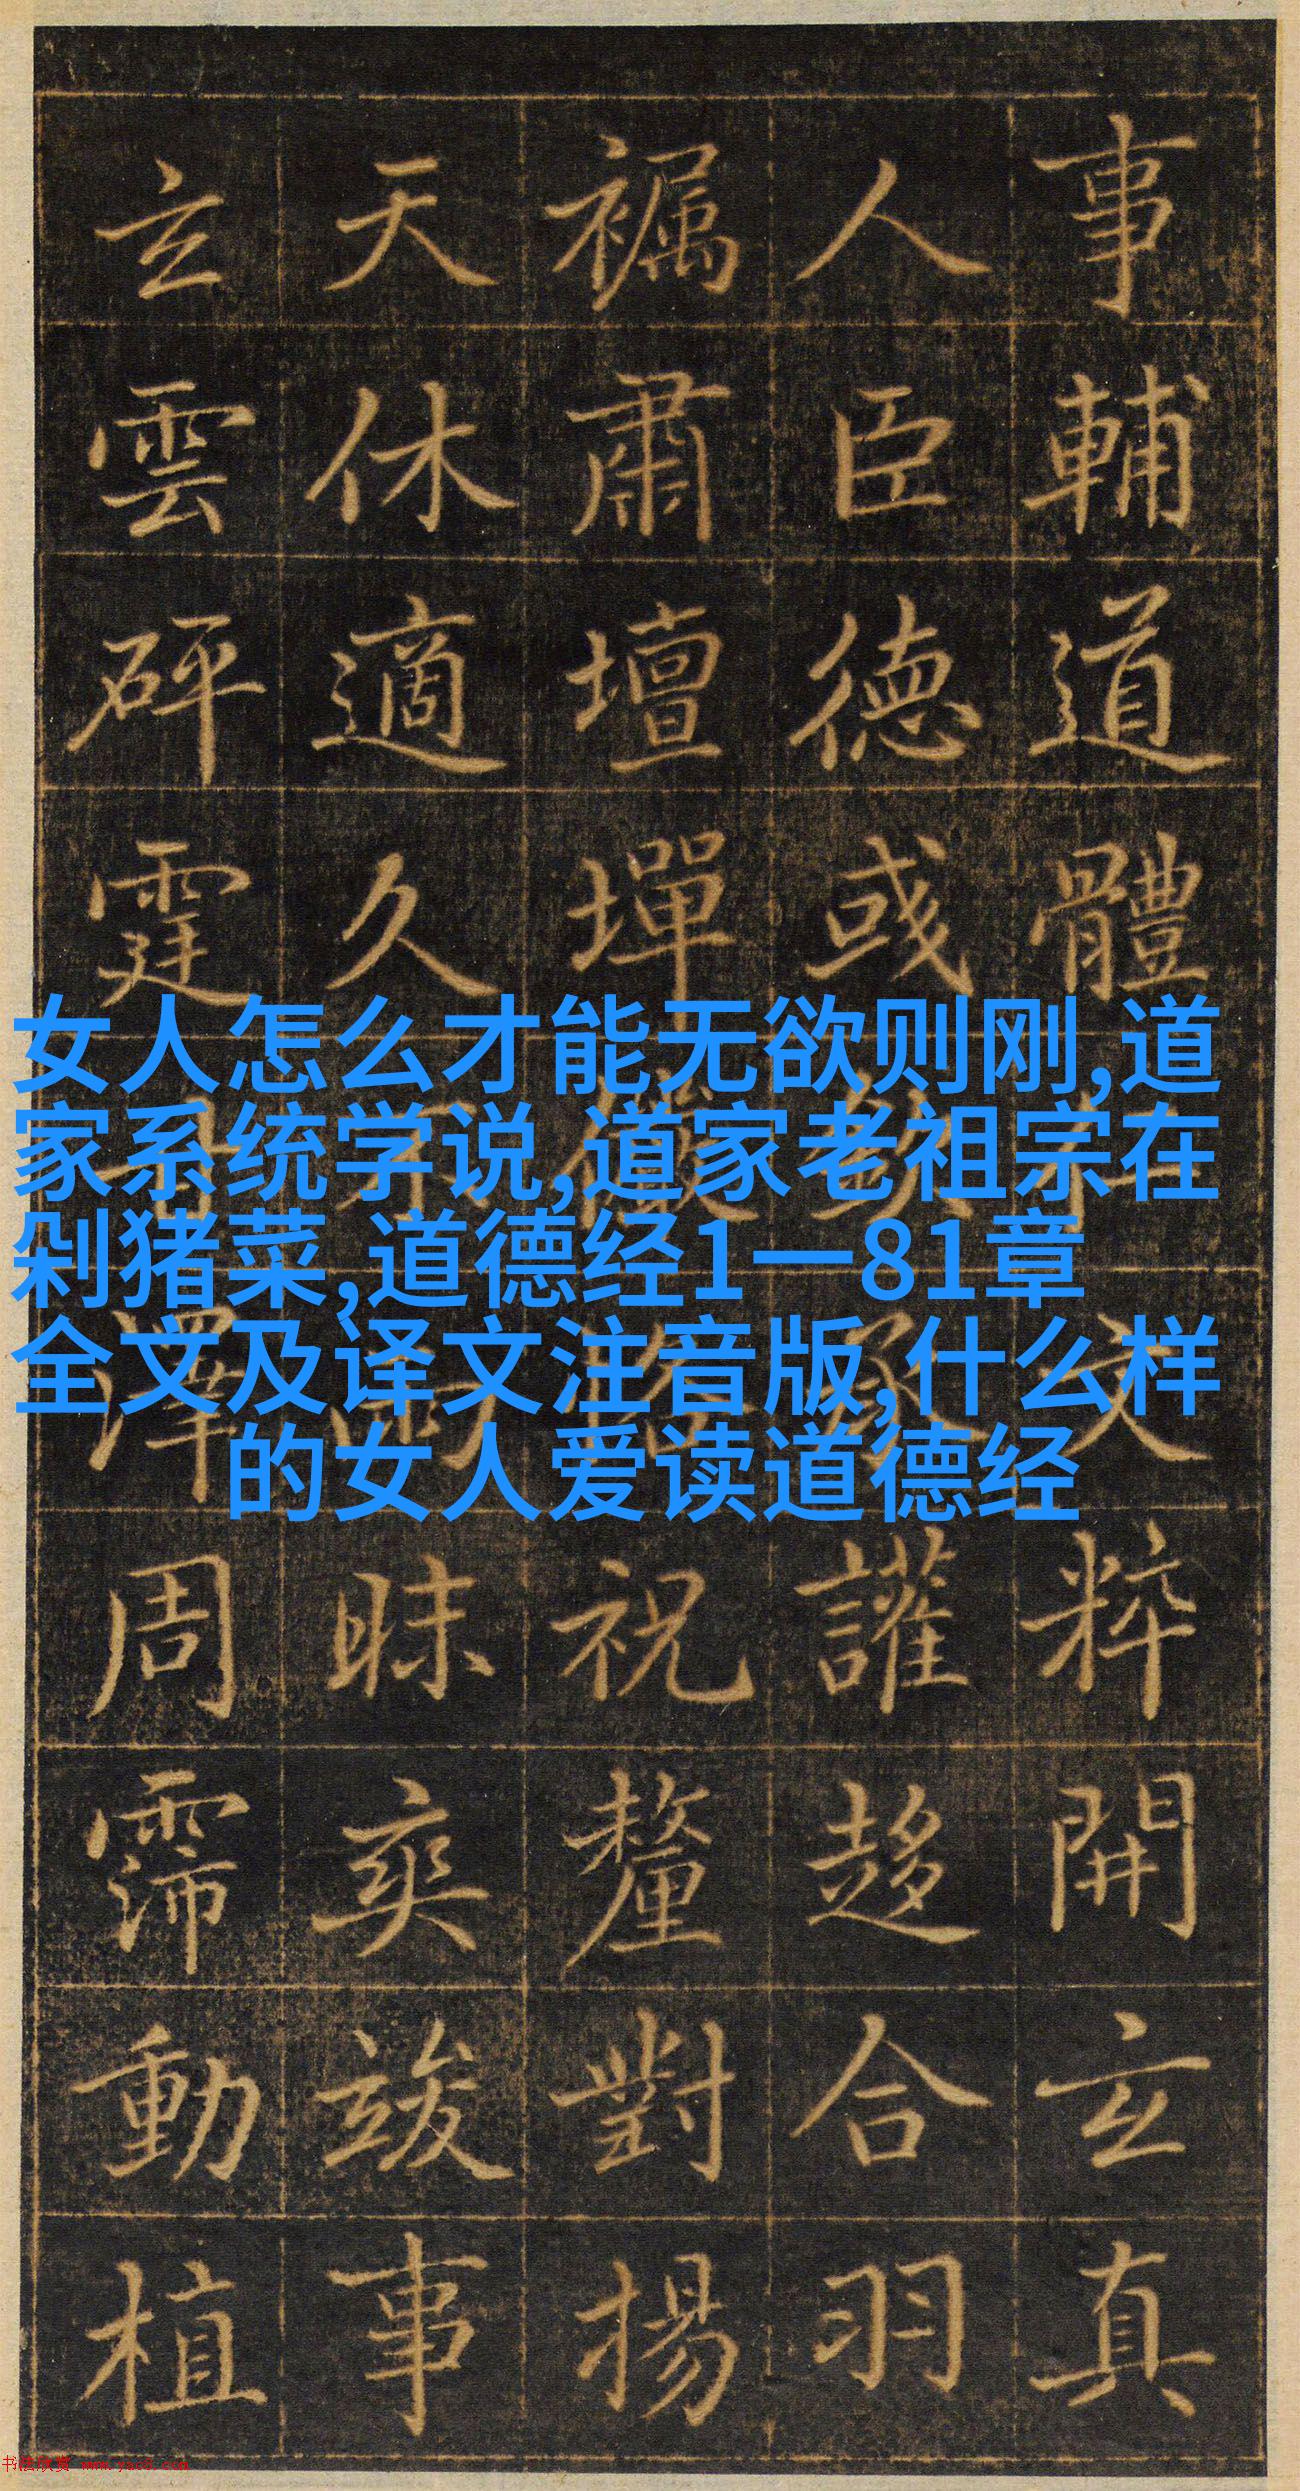 事輔道體文粹開玄真
人臣德或讙趍合羽
襡肅壇墠祝釐對揚
天休適久不雨眛爽竣事
玄雲砰霆甘澤周霈動植
女人怎么才能无欲则刚,道
家系统学说,道家老祖宗在
剁猪菜,道德经1一81章
全文及译文注音版,什么样
的女人爱读道德经
书法欣赏 www.yac8.com